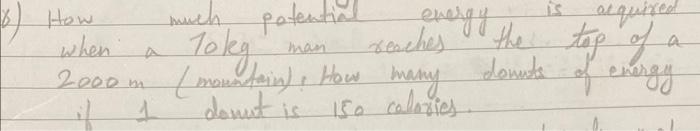 8) How much potential energy is acquired
when a 70kg man reaches the top of a
2000 m (mountain). How many donuts of energy
if 1 donut is 150 calories.